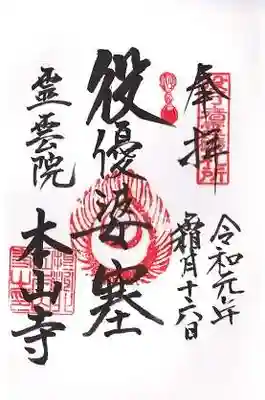 奉拝
令和元年
霜月十六日
役優婆塞
霊雲院
本山寺